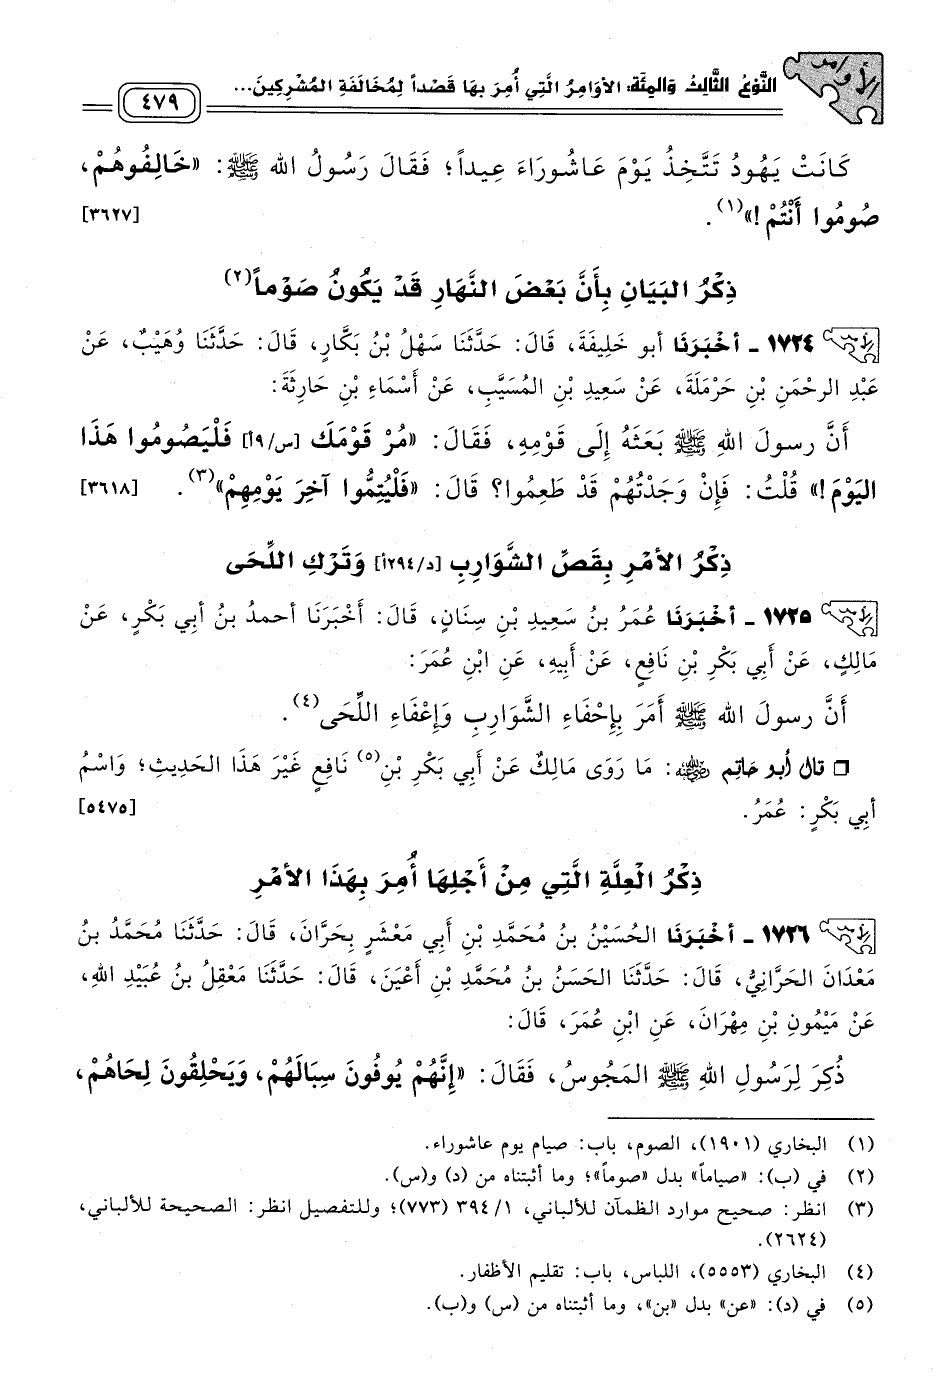 الأوامر
النَّوْعُ الثَّالِثُ وَالمِئَة: الأوَامِرُ الَّتِي أُمِرَ بِهَا قَصْداً لِمُخَالَفَةِ المُشْرِكِينَ...
٤٧٩
كَانَتْ يَهُودُ تَتَّخِذُ يَوْمَ عَاشُورَاءَ عِيداً؛ فَقَالَ رَسُولُ الله ﷺ: «خَالِفُوهُمْ،
صُومُوا أَنْتُمْ!»(١). [٣٦٢٧]
ذِكْرُ البَيَانِ بِأَنَّ بَعْضَ النَّهَارِ قَدْ يَكُونُ صَوْماً(٢)
١٧٢٤ - أخْبَرَنَا أبو خَلِيفَةَ، قَالَ: حَدَّثَنَا سَهْلُ بْنُ بَكَّارٍ، قَالَ: حَدَّثَنَا وُهَيْبٌ، عَنْ
عَبْدِ الرحْمَنِ بْنِ حَرْمَلَةَ، عَنْ سَعِيدِ بْنِ المُسَيَّبِ، عَنْ أَسْمَاءِ بْنِ حَارِثَةَ:
أَنَّ رسولَ اللهِ ﷺ بَعَثَهُ إِلَى قَوْمِهِ، فَقَالَ: «مُرْ قَوْمَكَ [س/٩أ] فَلْيَصُومُوا هَذَا
اليَوْمَ!» قُلْتُ: فَإِنْ وَجَدْتُهُمْ قَدْ طَعِمُوا؟ قَالَ: «فَلْيُتِمُّوا آخِرَ يَوْمِهِمْ»(٣). [٣٦١٨]
ذِكْرُ الأمْرِ بِقَصِّ الشَّوَارِبِ [د/٢٩٤أ] وَتَرْكِ اللِّحَى
١٧٢٥ - أخْبَرَنَا عُمَرُ بنُ سَعِيدِ بْنِ سِنَانٍ، قَالَ: أَخْبَرَنَا أحمدُ بنُ أبي بَكْرٍ، عَنْ
مَالِكٍ، عَنْ أَبِي بَكْرِ بْنِ نَافِعٍ، عَنْ أَبِيهِ، عَنِ ابْنِ عُمَرَ:
أَنَّ رسولَ الله ﷺ أَمَرَ بِإِحْفَاءِ الشَّوَارِبِ وَإِعْفَاءِ اللِّحَى(٤).
□ قال أبو حَاتِم رضي الله عنه: مَا رَوَى مَالِكٌ عَنْ أَبِي بَكْرِ بْنِ(٥) نَافِعٍ غَيْرَ هَذَا الحَدِيثِ؛ وَاسْمُ
أبِي بَكْرٍ: عُمَرُ. [٥٤٧٥]
ذِكْرُ العِلَّةِ الَّتِي مِنْ أَجْلِهَا أُمِرَ بِهَذَا الأمْرِ
١٧٢٦ - أخْبَرَنَا الحُسَيْنُ بنُ مُحَمَّدِ بْنِ أَبِي مَعْشَرٍ بِحَرَّانَ، قَالَ: حَدَّثَنَا مُحَمَّدُ بنُ
مَعْدَانَ الحَرَّانِيُّ، قَالَ: حَدَّثَنَا الحَسَنُ بنُ مُحَمَّدِ بْنِ أَعْيَنَ، قَالَ: حَدَّثَنَا مَعْقِلُ بنُ عُبَيْدِ اللهِ،
عَنْ مَيْمُونِ بْنِ مِهْرَانَ، عَنِ ابْنِ عُمَرَ، قَالَ:
ذُكِرَ لِرَسُولِ اللهِ ﷺ المَجُوسُ، فَقَالَ: «إِنَّهُمْ يُوفُونَ سِبَالَهُمْ، وَيَحْلِقُونَ لِحَاهُمْ،
(١) البخاري (١٩٠١)، الصوم، باب: صيام يوم عاشوراء.
(٢) في (ب): «صياماً» بدل «صوماً»؛ وما أثبتناه من (د) و(س).
(٣) انظر: صحيح موارد الظمآن للألباني، ١/ ٣٩٤ (٧٧٣)؛ وللتفصيل انظر: الصحيحة للألباني،
(٢٦٢٤).
(٤) البخاري (٥٥٥٣)، اللباس، باب: تقليم الأظفار.
(٥) في (د): «عن» بدل «بن»، وما أثبتناه من (س) و(ب).